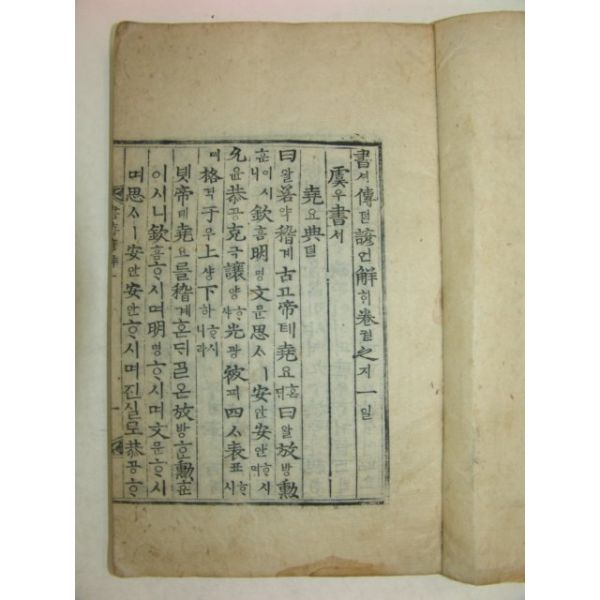 書셔傳뎐諺언解ᄒᆡ卷권之지一일
虞우書셔
堯요典뎐
曰왈若약稽계古고帝뎨堯요혼ᄃᆡ曰왈放방勳
훈이시니欽흠明명文문思ᄉᆞㅣ安안安안ᄒᆞ시며
允윤恭공克극讓양ᄒᆞ샤光광被피四ᄉᆞ表표ᄒᆞ시
며格격于우上샹下하ᄒᆞ시니라
녯帝뎨堯요를稽계혼ᄃᆡᄀᆞᆯ온放방ᄒᆞᆫ勳훈
이시니欽흠ᄒᆞ시며明명ᄒᆞ시며文문ᄒᆞ시
며思ᄉᆞㅣ安안安안ᄒᆞ시며진실로恭공ᄒᆞ시